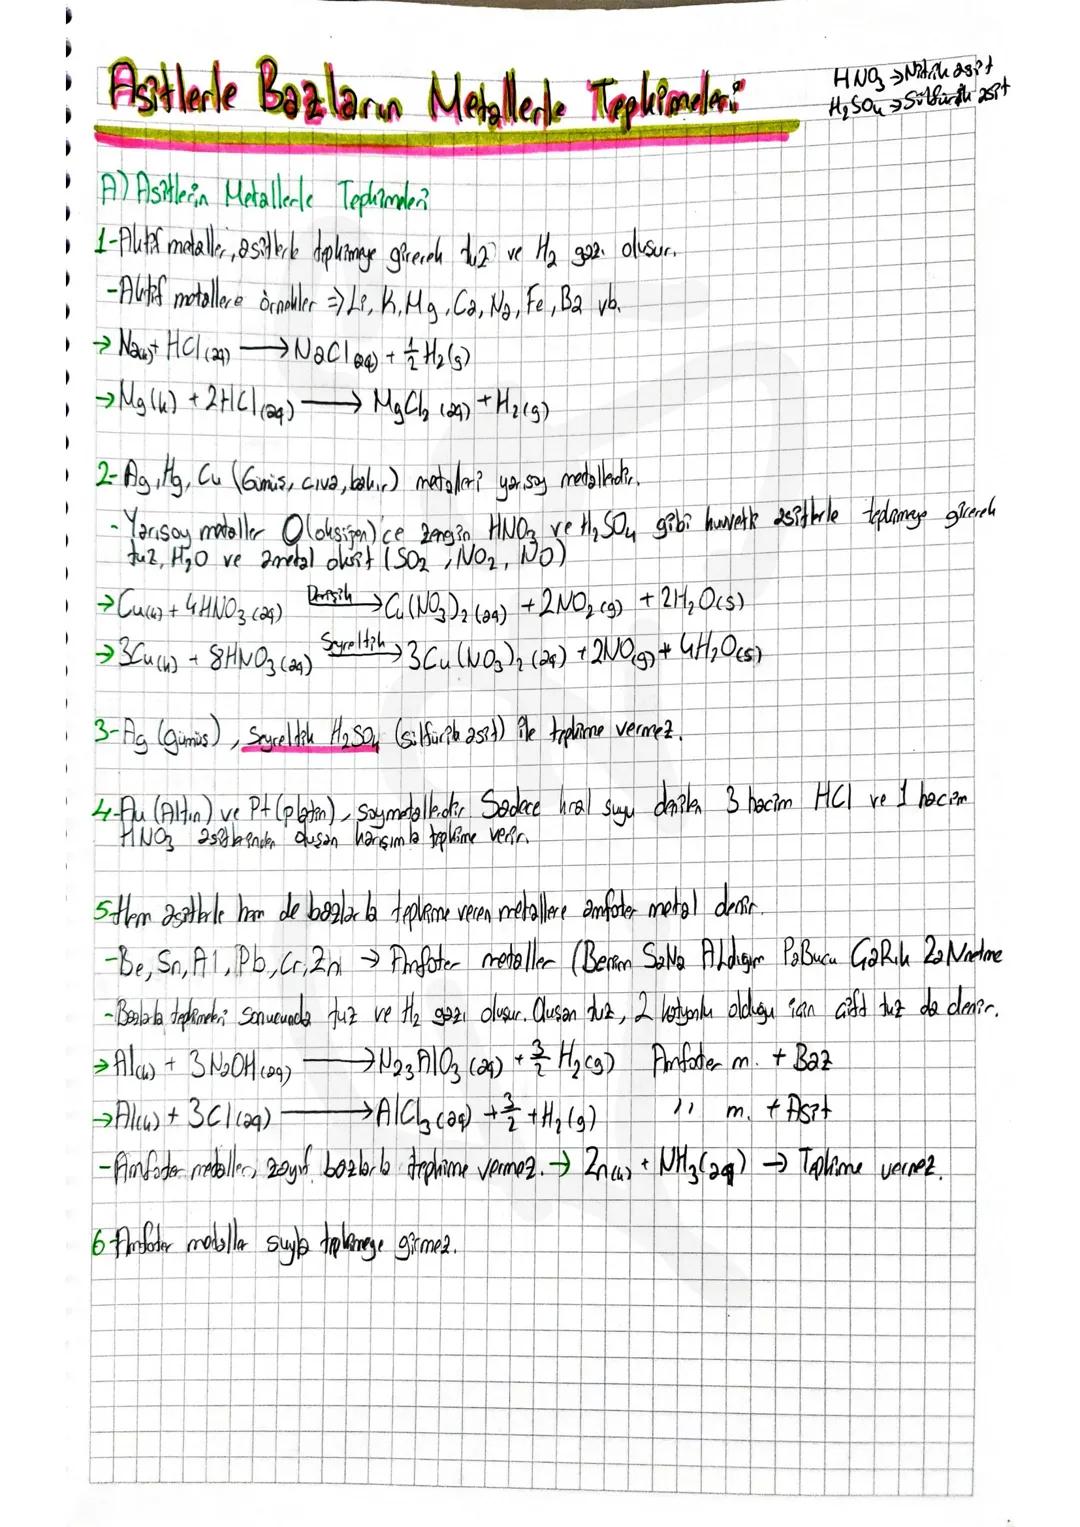 Asitlerle Bazların Metallerle Tepkimeleri
HNO3 → Nitrik asit
H2SO4 → Sülfürik asit
A) Asitlerin Metallerle Tepkimeleri
1-Aktif metaller, asitlerle tepkimeye girerek tuz ve H2 gazı oluşur.
-Aktif metallere örnekler => Li, K, Mg, Ca, Na, Fe, Ba vb.
→ Na(k) + HCl (aq) → NaCl (aq) + 1/2 H2 (g)
→ Mg (k) + 2HCl (aq) → MgCl2 (aq) + H2 (g)
2- Ag, Hg, Cu (Gümüş, civa, bakır) metalleri yarısoy metallerdir.
- Yarısoy metaller O (oksijen)'ce zengin HNO3 ve H2SO4 gibi kuvvetli asitlerle tepkimeye girerek
tuz, H2O ve ametal oksit (SO2, NO2, NO)
→ Cu(k) + 4HNO3 (aq) Derişik → Cu(NO3)2 (aq) + 2NO2 (g) + 2H2O(s)
→ 3Cu(k) + 8HNO3 (aq) Seyreltik → 3Cu(NO3)2 (aq) + 2NO(g) + 4H2O(s)
3- Ag (gümüş), Seyreltik H2SO4 (sülfürik asit) ile tepkime vermez.
4-Au (Altın) ve Pt (platin), Soymetallerdir. Sadece kral suyu denilen 3 hacim HCl ve 1 hacim
HNO3 asitlerinden oluşan karışımla tepkime verir.
5-Hem asitlerle hem de bazlarla tepkime veren metallere amfoter metal denir.
-Be, Sn, Al, Pb, Cr, Zn → Amfoter metaller (Benim SaNa ALdığım PaBucu CaRık ZaNnetme
-Bazlarla tepkimeleri sonucunda tuz ve H2 gazı oluşur. Oluşan tuz, 2 katyonlu olduğu için çift tuz da denir.
→ Al(k) + 3NaOH (aq) → Na3AlO3 (aq) + 3/2 H2 (g) Amfoter m. + Baz
→ Al(k) + 3Cl (aq) → AlCl3 (aq) + 3/2 + H2 (g) " m. + Asit
-Amfoter metaller, zayıf bazlarla tepkime vermez. → Zn(k) + NH3 (aq) → Tepkime vermez.
6-Amfoter metaller suyla tepkimeye girmez.